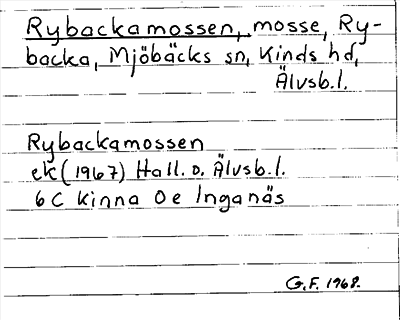 Rybackamossen, mosse, Ry-
backa, Mjöbäcks sn, Kinds hd,
Älvsb.l.
Rybackamossen
ek (1967) Hall. o. Älvsb.l.
6C Kinna 0e Inganäs
G.F. 1968.